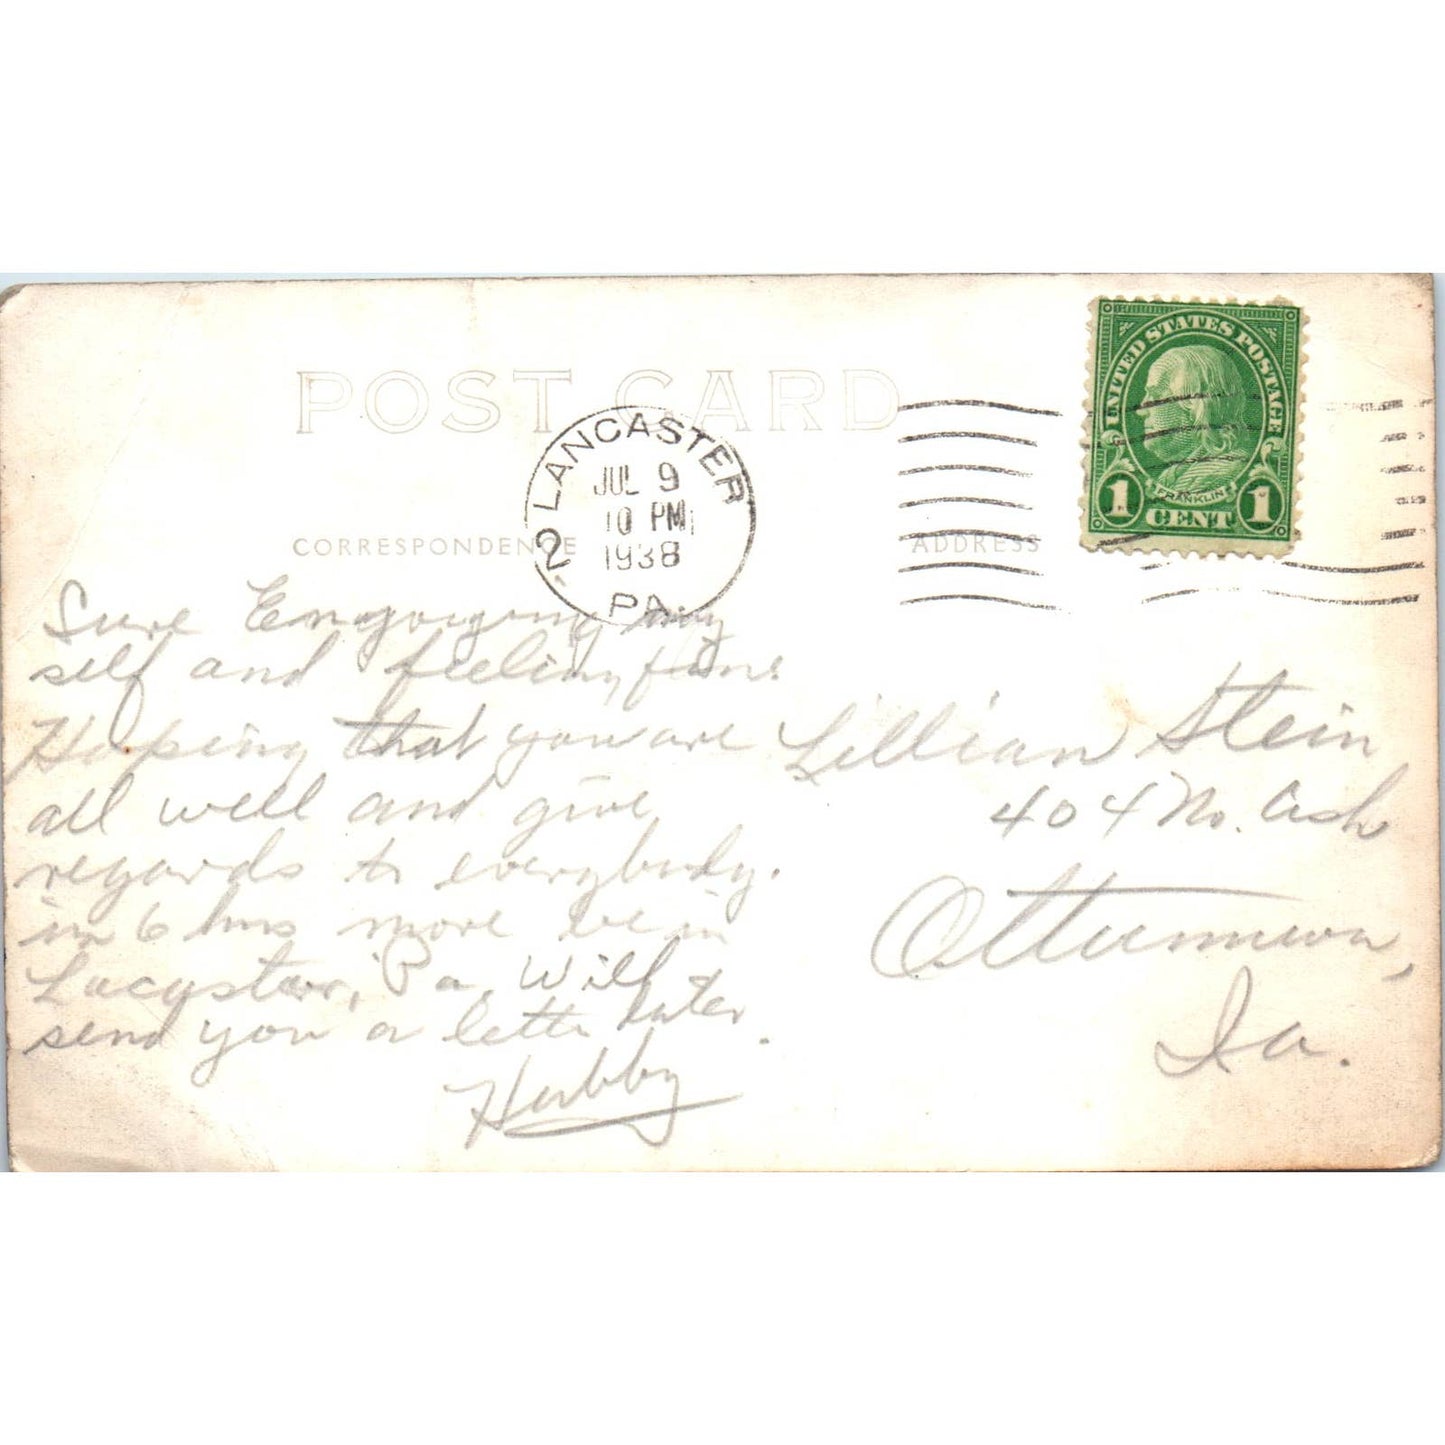 POST CARD
LANCASTER
JUL 9
10 PM
1938
2
PA.
UNITED STATES POSTAGE
FRANKLIN
1 CENT 1
CORRESPONDENCE
ADDRESS
Sure Engoiging my
self and feeling fine.
Hopeing that you are
all well and give
regards to everybody.
in 6 hrs more be in
Lacyster, Pa. Will
send you a letter later.
Hubby
Lillian Stein
404 No. Ash
Ottumwa,
Ia.